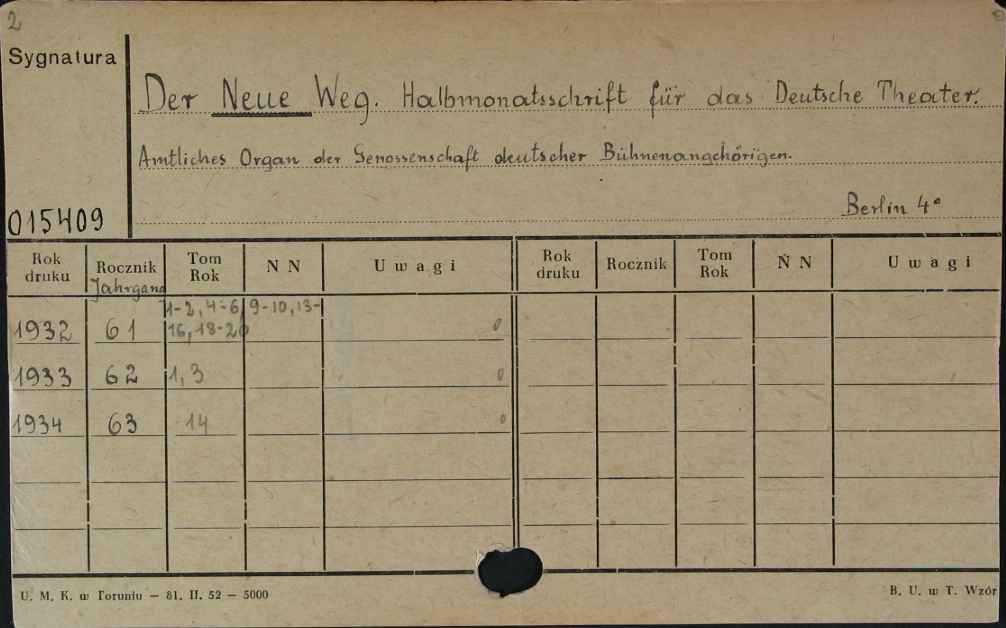 2
Sygnatura
Der Neue Weg. Halbmonatsschrift für das Deutsche Theater.
Amtliches Organ der Genossenschaft deutscher Bühnenangehörigen.
015409
Berlin 4°
Rok druku Rocznik Jahrgang Tom Rok N N Uwagi Rok druku Rocznik Tom Rok N N Uwagi
1932 61 1-2, 4-6, 9-10, 13-
16, 18-20 0
1933 62 1, 3 0
1934 63 14 0
U. M. K. w Toruniu – 81. II. 52 – 5000
B. U. w T. Wzór